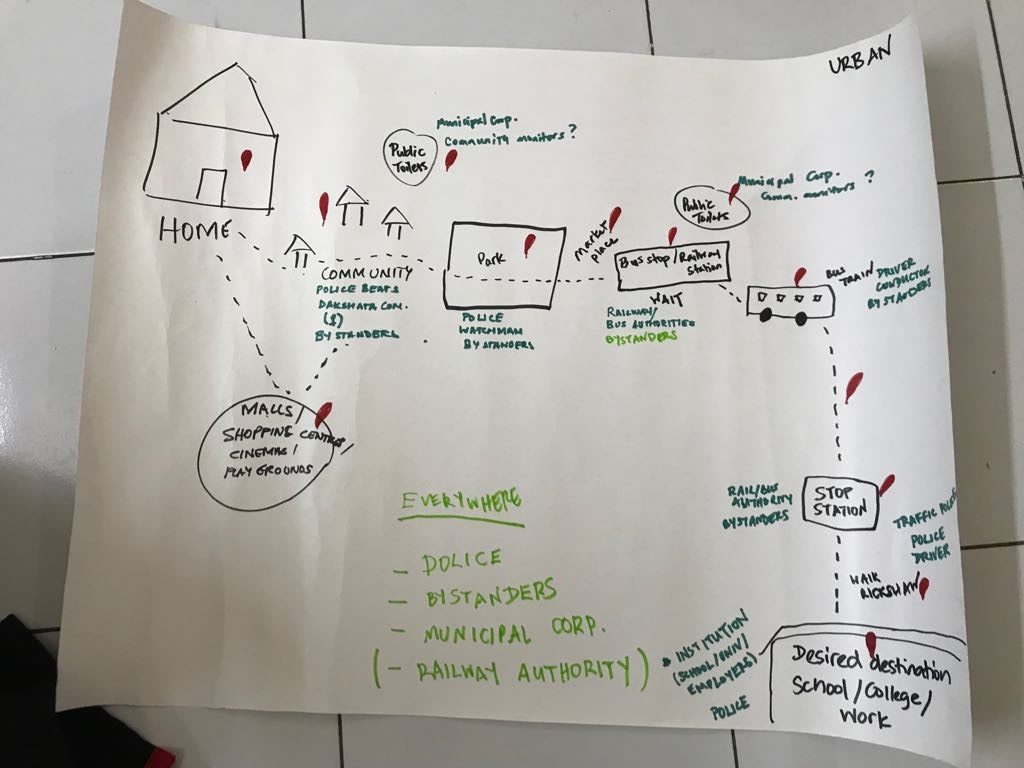 URBAN
Municipal Corp.
Community monitors ?
Public
Toilets
HOME
COMMUNITY
POLICE BEATS
DAKSHATA COM.
($)
BYSTANDERS
Park
POLICE
WATCHMAN
BYSTANDERS
Market
Place
Municipal Corp.
Comm. monitors ?
Public
Toilets
Bus stop / Railway
Station
WAIT
RAILWAY/
BUS AUTHORITIES
BYSTANDERS
BUS
TRAIN
DRIVER
CONDUCTOR
BYSTANDERS
MALLS/
SHOPPING CENTRES/
CINEMAS/
PLAY GROUNDS
EVERYWHERE
- POLICE
- BYSTANDERS
- MUNICIPAL CORP.
(- RAILWAY AUTHORITY)
RAIL/BUS
AUTHORITY
BYSTANDERS
STOP
STATION
TRAFFIC POLICE
POLICE
DRIVER
WALK
RICKSHAW
INSTITUTION
(SCHOOL/UNIV/
EMPLOYERS)
POLICE
Desired destination
School/College/
Work